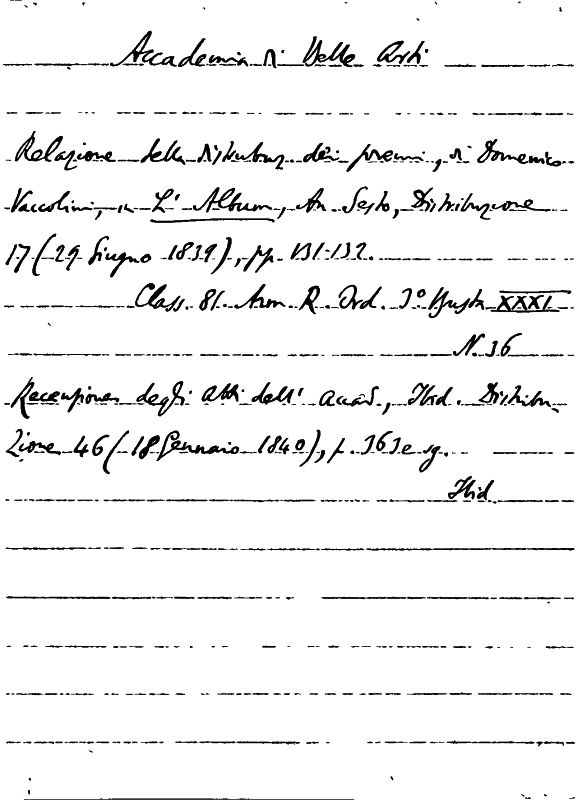 Accademia di Belle Arti
Relazione della distribuz. dei premi, di Domenico
Vaccolini, in L' Album, An. Sesto, Distribuzione
17 (29 Giugno 1839), pp. 131-132.
Class. 81. Arm. R. Ord. 3° Busta XXXI
N. 36
Recensione degli Atti dell' Accad., Ibid. Distribu-
zione 46 (18 Gennaio 1840), p. 363 e sg.
Ibid.